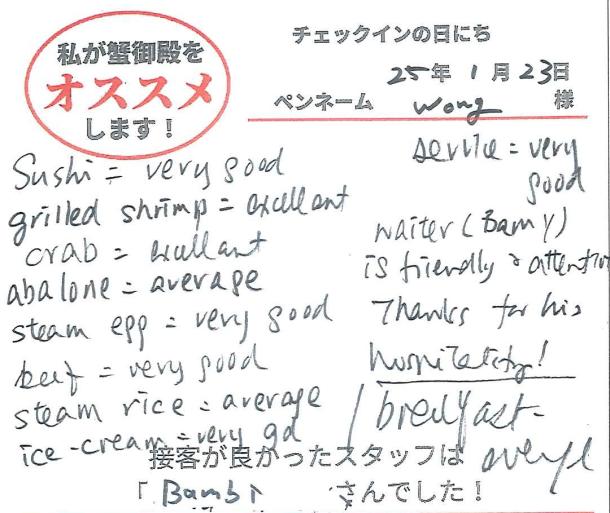 私が蟹御殿を
オススメ
します！
チェックインの日にち
25年 1月 23日
ペンネーム Wong 様
Sushi = very good
grilled shrimp = excellant
crab = excellant
abalone = average
steam egg = very good
beef = very good
steam rice = average
ice-cream = very gd
service = very
good
waiter (Bamy)
is friendly & attentiv
Thanks for his
hospitality!
breakfast -
average
接客が良かったスタッフは
「 Bambi さんでした！